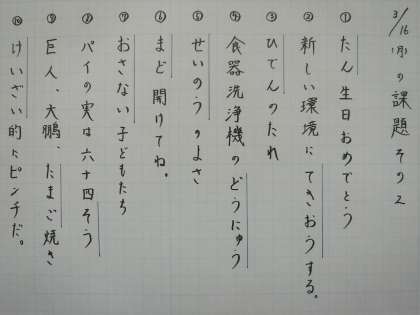 3/16(月)の課題その2
① たん生日おめでとう
② 新しい環境にてきおうする。
③ ひでんのたれ
④ 食器洗浄機のどうにゅう
⑤ せいのうのよさ
⑥ まど開けてね。
⑦ おさない子どもたち
⑧ パイの実は六十四そう
⑨ 巨人、大鵬、たまご焼き
⑩ けいざい的にピンチだ。